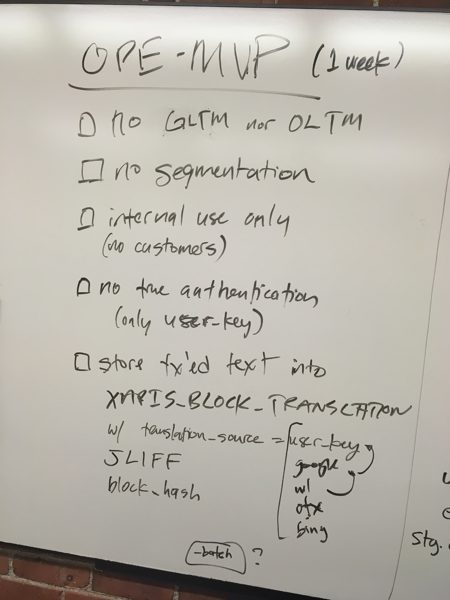 OPE-MVP (1 week)
no GLTM nor OLTM
no segmentation
internal use only
(no customers)
no true authentication
(only user-key)
store tx'ed text into
XAPIS_BLOCK_TRANSLATION
w/ translation_source = user_key
google
JLIFF
wl
block_hash
otx
bing
-batch ?
Stg.